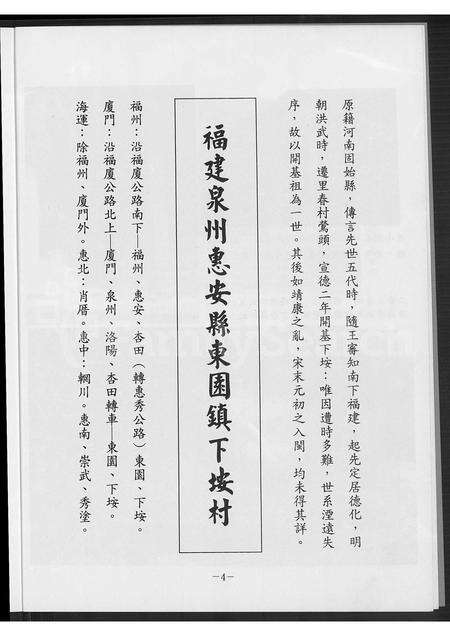 原籍河南固始縣，傳言先世五代時，隨王審知南下福建，起先定居德化，明
朝洪武時，遷里春村鶯頭，宣德二年開基下垵；唯因遭時多難，世系湮遠失
序，故以開基祖為一世。其後如靖康之亂，宋末元初之入閩，均未得其詳。
福建泉州惠安縣東園鎮下垵村
福州：沿福廈公路南下—福州、惠安、杏田（轉惠秀公路）東園、下垵。
廈門：沿福廈公路北上—廈門、泉州、洛陽、杏田轉車—東園、下垵。
海運：除福州、廈門外。惠北：肖厝。惠中：輞川。惠南、崇武、秀塗。
－4－